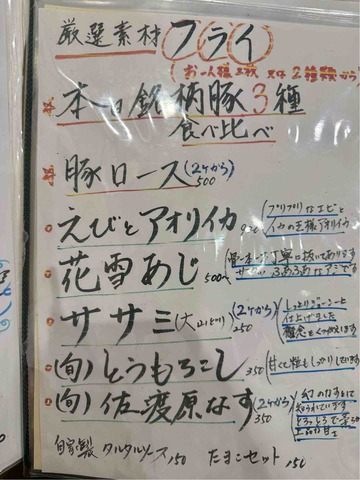 厳選素材 フライ
(お一人様2枚 又は2種類から)
本日銘柄豚3種
食べ比べ
豚ロース (2ケから) 500
えびとアオリイカ (プリプリなエビと
イカの王様アオリイカ
花雪あじ 500〜
サササミ(大山どり) (2ケから) 250 しっとりジューシーに
仕上げました
概念をくつがえします
(旬)とうもろこし 350 (甘くて粒もしっかりしています
(旬)佐渡原なす (2ケから) 350 幻のナスとして
知られています
とろっとろで柔らか
上品な甘さ
自家製 タルタルソース150 たまごセット 150